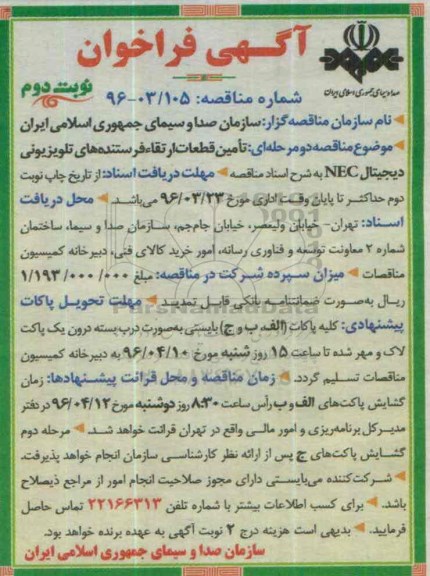 آگهی فراخوان
صدا و سیمای جمهوری اسلامی ایران
نوبت دوم
شماره مناقصه: ۹۶-۰۳/۱۰۵
نام سازمان مناقصه گزار: سازمان صدا و سیمای جمهوری اسلامی ایران
موضوع مناقصه دو مرحله ای: تأمین قطعات ارتقاء فرستنده های تلویزیونی
دیجیتال NEC به شرح اسناد مناقصه مهلت دریافت اسناد: از تاریخ چاپ نوبت
دوم حداکثر تا پایان وقت اداری مورخ ۹۶/۰۳/۲۳ می باشد. محل دریافت
اسناد: تهران- خیابان ولیعصر، خیابان جام جم، سازمان صدا و سیما، ساختمان
شماره ۲ معاونت توسعه و فناوری رسانه، امور خرید کالای فنی، دبیرخانه کمیسیون
مناقصات میزان سپرده شرکت در مناقصه: مبلغ ۱/۱۹۳/۰۰۰/۰۰۰
ریال به صورت ضمانتنامه بانکی قابل تمدید مهلت تحویل پاکات
پیشنهادی: کلیه پاکات (الف، ب و ج) بایستی به صورت درب بسته درون یک پاکت
لاک و مهر شده تا ساعت ۱۵ روز شنبه مورخ ۹۶/۰۴/۱۰ به دبیرخانه کمیسیون
مناقصات تسلیم گردد. زمان مناقصه و محل قرائت پیشنهادها: زمان
گشایش پاکت های الف و ب رأس ساعت ۸:۳۰ روز دوشنبه مورخ ۹۶/۰۴/۱۲ در دفتر
مدیرکل برنامه ریزی و امور مالی واقع در تهران قرائت خواهد شد. مرحله دوم
گشایش پاکت های ج پس از ارائه نظر کارشناسی سازمان انجام خواهد پذیرفت.
شرکت کننده می بایستی دارای مجوز صلاحیت انجام امور از مراجع ذیصلاح
باشد. برای کسب اطلاعات بیشتر با شماره تلفن ۲۲۱۶۶۳۱۳ تماس حاصل
فرمایید. بدیهی است هزینه درج ۲ نوبت آگهی به عهده برنده خواهد بود.
سازمان صدا و سیمای جمهوری اسلامی ایران